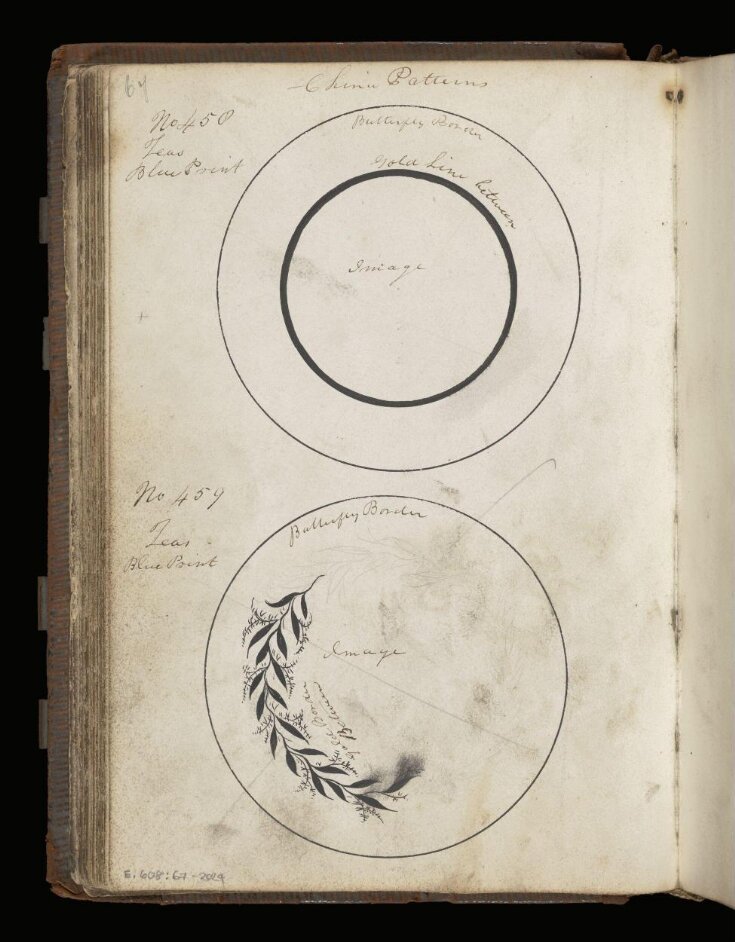 67
China Patterns
No 450
Teas
Blue Print
Butterfly Border
Gold Line between
Image
No 459
Teas
Blue Print
Butterfly Border
Image
Gold Border
Between
E.608:67-2024